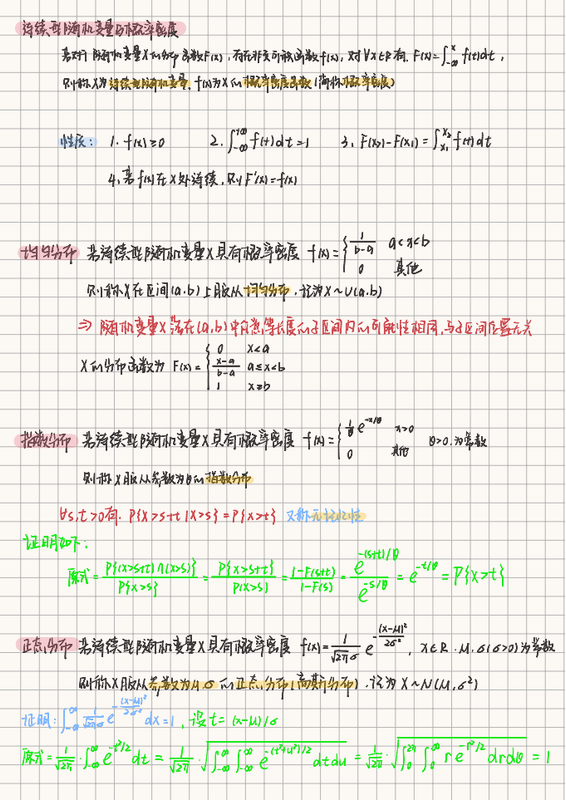 连续型随机变量与概率密度
若对于随机变量X的分布函数F(x), 存在非负可积函数f(x), 对∀x∈R有 F(x)=∫_{-∞}^{x} f(t)dt,
则称X为连续型随机变量, f(x)为X的概率密度函数(简称概率密度)
性质: 1. f(x)≥0 2. ∫_{-∞}^{+∞} f(t)dt=1 3. F(x₂)-F(x₁)=∫_{x₁}^{x₂} f(t)dt
4. 若f(x)在x处连续, 则F'(x)=f(x)
均匀分布 若连续型随机变量X具有概率密度 f(x)={ 1/(b-a) a<x<b
0 其他
则称X在区间(a,b)上服从均匀分布, 记为X~U(a,b)
⇒ 随机变量X落在(a,b)中任意等长度的子区间内的可能性相同, 与子区间位置无关
X的分布函数为 F(x)={ 0 x<a
(x-a)/(b-a) a≤x<b
1 x≥b
指数分布 若连续型随机变量X具有概率密度 f(x)={ (1/θ)e^{-x/θ} x>0
0 其他 θ>0, 为常数
则称X服从参数为θ的指数分布
∀s,t>0有, P{X>s+t|X>s}=P{X>t} 又称无记忆性
证明如下:
原式=P{(X>s+t)∩(X>s)}/P{X>s}=P{X>s+t}/P{X>s}=(1-F(s+t))/(1-F(s))=e^{-(s+t)/θ}/e^{-s/θ}=e^{-t/θ}=P{X>t}
正态分布 若连续型随机变量X具有概率密度 f(x)=1/(√(2π)σ) e^{-(x-μ)²/(2σ²)}, x∈R. μ,σ(σ>0)为常数
则称X服从参数为μ,σ的正态分布(高斯分布), 记为X~N(μ,σ²)
证明: ∫_{-∞}^{∞} 1/(√(2π)σ) e^{-(x-μ)²/(2σ²)} dx=1, 设t=(x-μ)/σ
原式=1/√(2π)·∫_{-∞}^{∞} e^{-t²/2}dt=1/√(2π)·√(∫_{-∞}^{∞}∫_{-∞}^{∞} e^{-(t²+u²)/2} dtdu)=1/√(2π)·√(∫_{0}^{2π}∫_{0}^{∞} re^{-r²/2}drdθ)=1